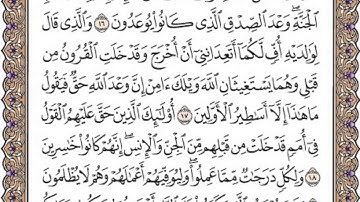 ٱلْجَنَّةِ وَعْدَ ٱلصِّدْقِ ٱلَّذِى كَانُوا۟ يُوعَدُونَ ١٦ وَٱلَّذِى قَالَ
لِوَٰلِدَيْهِ أُفٍّ لَّكُمَآ أَتَعِدَانِنِىٓ أَنْ أُخْرَجَ وَقَدْ خَلَتِ ٱلْقُرُونُ مِن
قَبْلِى وَهُمَا يَسْتَغِيثَانِ ٱللَّهَ وَيْلَكَ ءَامِنْ إِنَّ وَعْدَ ٱللَّهِ حَقٌّ فَيَقُولُ
مَا هَٰذَآ إِلَّآ أَسَٰطِيرُ ٱلْأَوَّلِينَ ١٧ أُو۟لَٰٓئِكَ ٱلَّذِينَ حَقَّ عَلَيْهِمُ ٱلْقَوْلُ
فِىٓ أُمَمٍ قَدْ خَلَتْ مِن قَبْلِهِم مِّنَ ٱلْجِنِّ وَٱلْإِنسِ إِنَّهُمْ كَانُوا۟ خَٰسِرِينَ
١٨ وَلِكُلٍّ دَرَجَٰتٌ مِّمَّا عَمِلُوا۟ وَلِيُوَفِّيَهُمْ أَعْمَٰلَهُمْ وَهُمْ لَا يُظْلَمُونَ